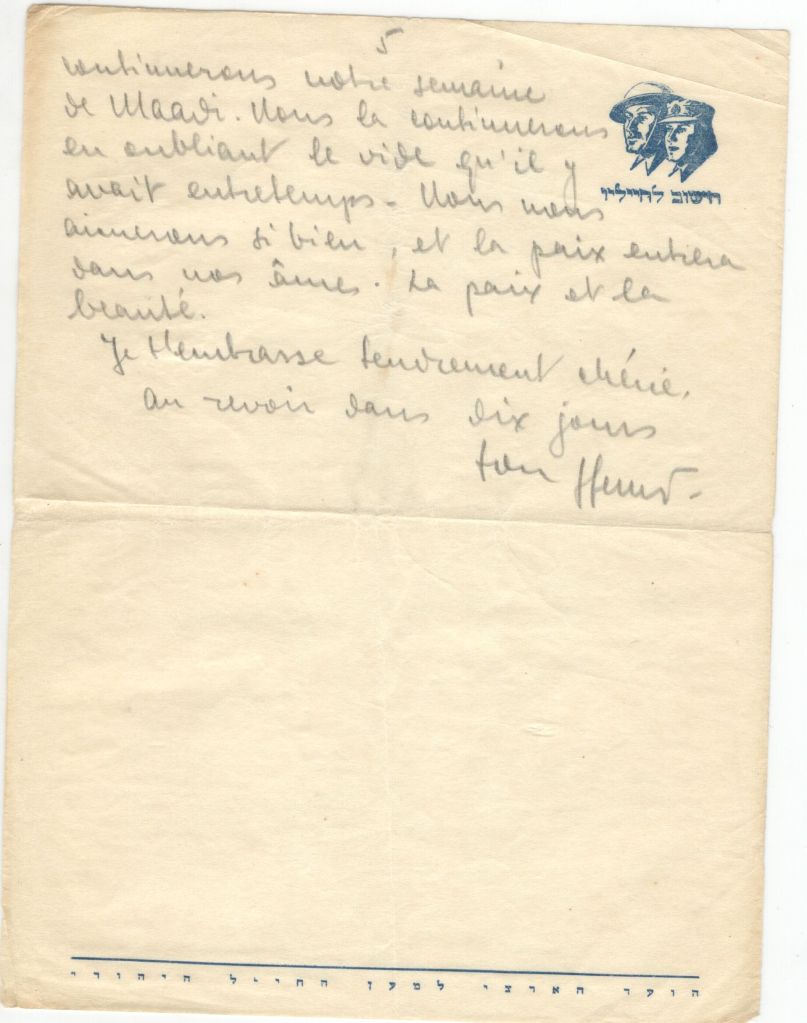 5
continuerons notre semaine
de Maadi. Nous la continuerons
en oubliant le vide qu'il y
avait entretemps - Nous nous
aimerons si bien, et la paix entrera
dans nos âmes. La paix et la
beauté.
Je t'embrasse tendrement chérie.
au revoir dans dix jours
ton
חשוב לחיילי
הועד הארצי למען החייל היהודי